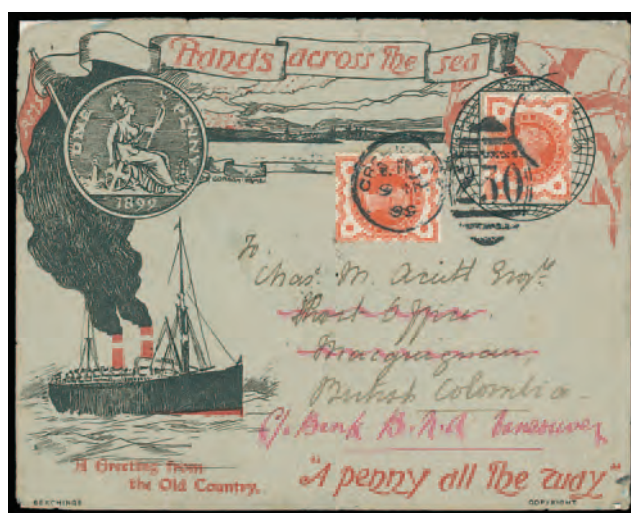 Hands across the sea
ONE PENNY
1899
To
Chas. M. Acutt Esqre.
Post Office
British Colombia
C/o Bank B.N.A Vancouver
A Greeting from
the Old Country.
"A penny all the way."
COPYRIGHT